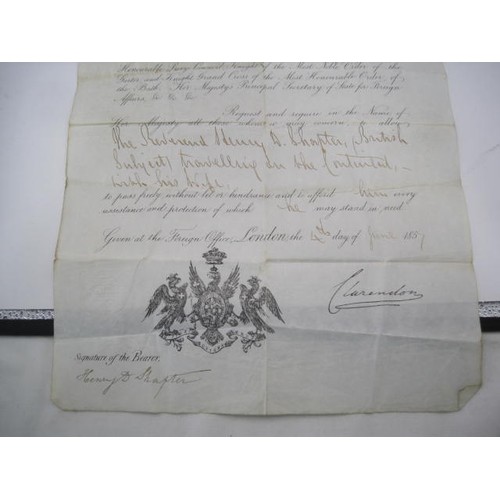 Honourable Privy Council Knight of the Most Noble Order of the
Garter and Knight Grand Cross of the Most Honourable Order of
the Bath, Her Majesty's Principal Secretary of State for Foreign
Affairs, &c &c &c
Request and require in the Name of
Her Majesty all those whom it may concern to allow
The Reverend Henry D. Shapter, British
Subject, travelling on the Continent,
with his wife,
to pass freely without let or hindrance and to afford them every
assistance and protection of which he may stand in need
Given at the Foreign Office, London, the 4th day of June 1857
Clarendon
Signature of the Bearer,
Henry D Shapter